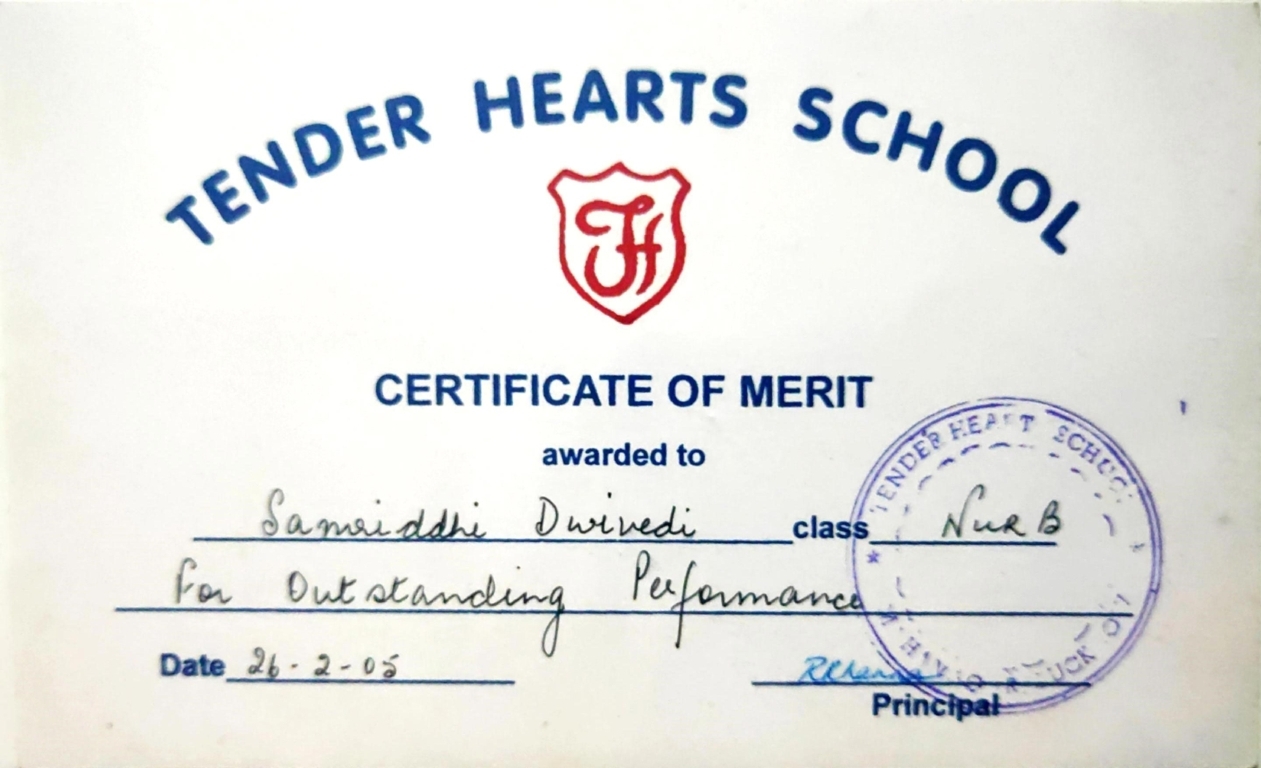 TENDER HEARTS SCHOOL
TH
CERTIFICATE OF MERIT
awarded to
Samriddhi Dwivedi class Nur B
For Outstanding Performance
Date 26-2-05
Principal
TENDER HEART SCHOOL